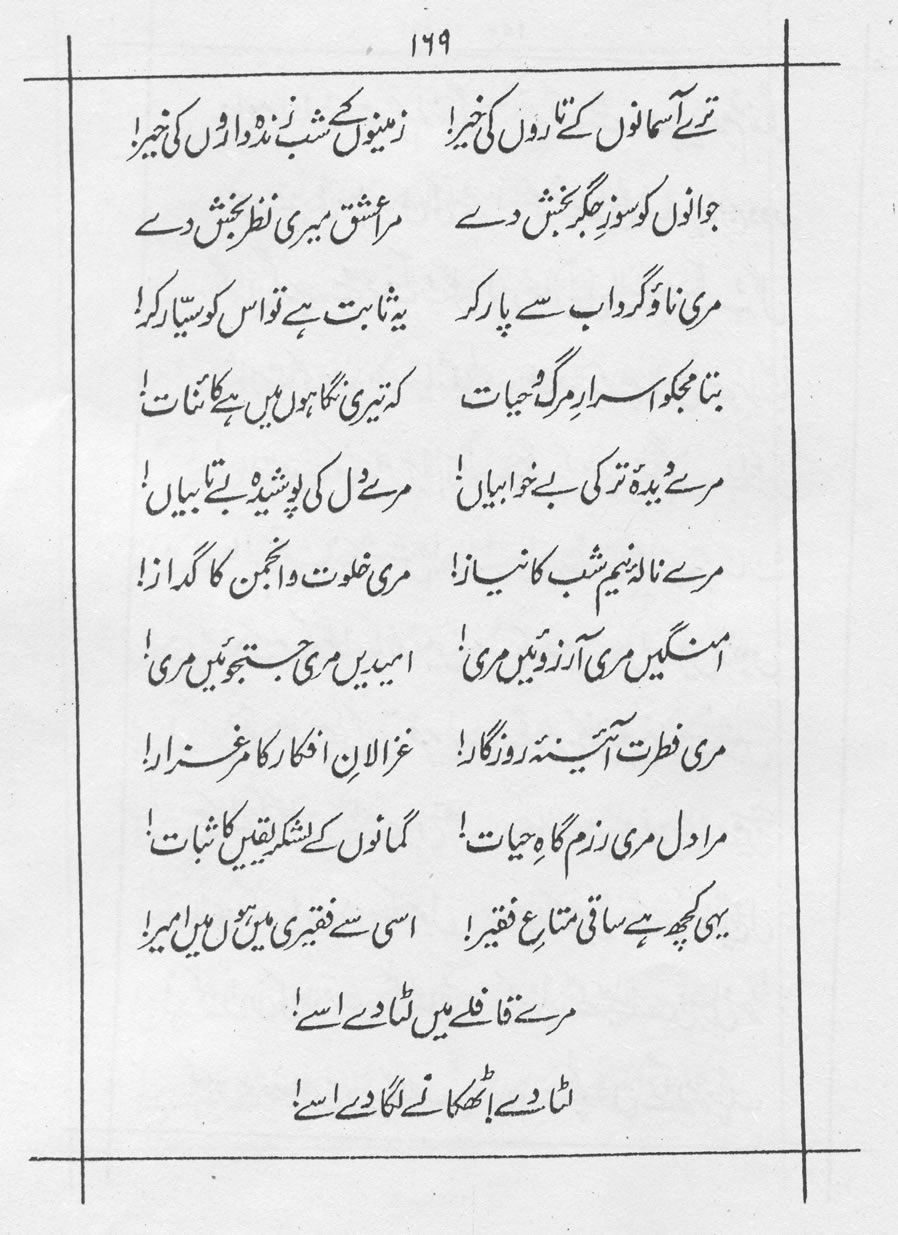 ۱۶۹
ترے آسمانوں کے تاروں کی خیر! زمینوں کے شب زندہ داروں کی خیر!
جوانوں کو سوزِ جگر بخش دے مرا عشق میری نظر بخش دے
مری ناؤ گرداب سے پار کر یہ ثابت ہے تو اس کو سیّار کر!
بتا مجکو اسرارِ مرگ و حیات کہ تیری نگاہوں میں ہے کائنات!
مرے دیدۂ تر کی بے خوابیاں! مرے دل کی پوشیدہ بے تابیاں!
مرے نالۂ نیم شب کا نیاز! مری خلوت و انجمن کا گداز!
امنگیں مری آرزوئیں مری! امیدیں مری جستجوئیں مری!
مری فطرت آئینۂ روزگار! غزالانِ افکار کا مرغزار!
مرا دل مری رزم گاہِ حیات! گمانوں کے لشکر یقیں کا ثبات!
یہی کچھ ہے ساقی متاعِ فقیر! اسی سے فقیری میں ہوں میں امیر!
مرے قافلے میں لٹا دے اسے!
لٹا دے! ٹھکانے لگا دے اسے!